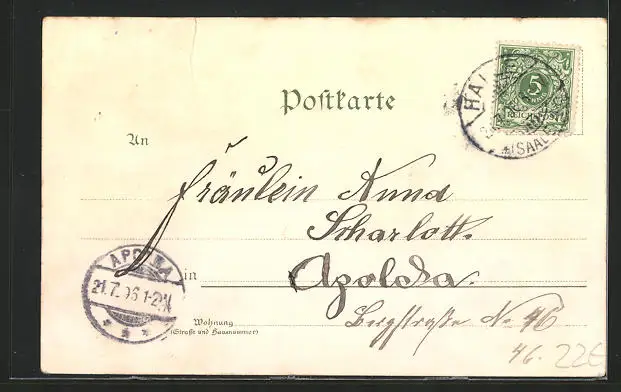 Postkarte
5
REICHSPOST
HAL
(SAALE
An
Fräulein Anna
Scharlott.
APOLDA
in Apolda.
21.7.96 1-2N
Wohnung
(Straße und Hausnummer)
Bergstraße No 46
46. 22E